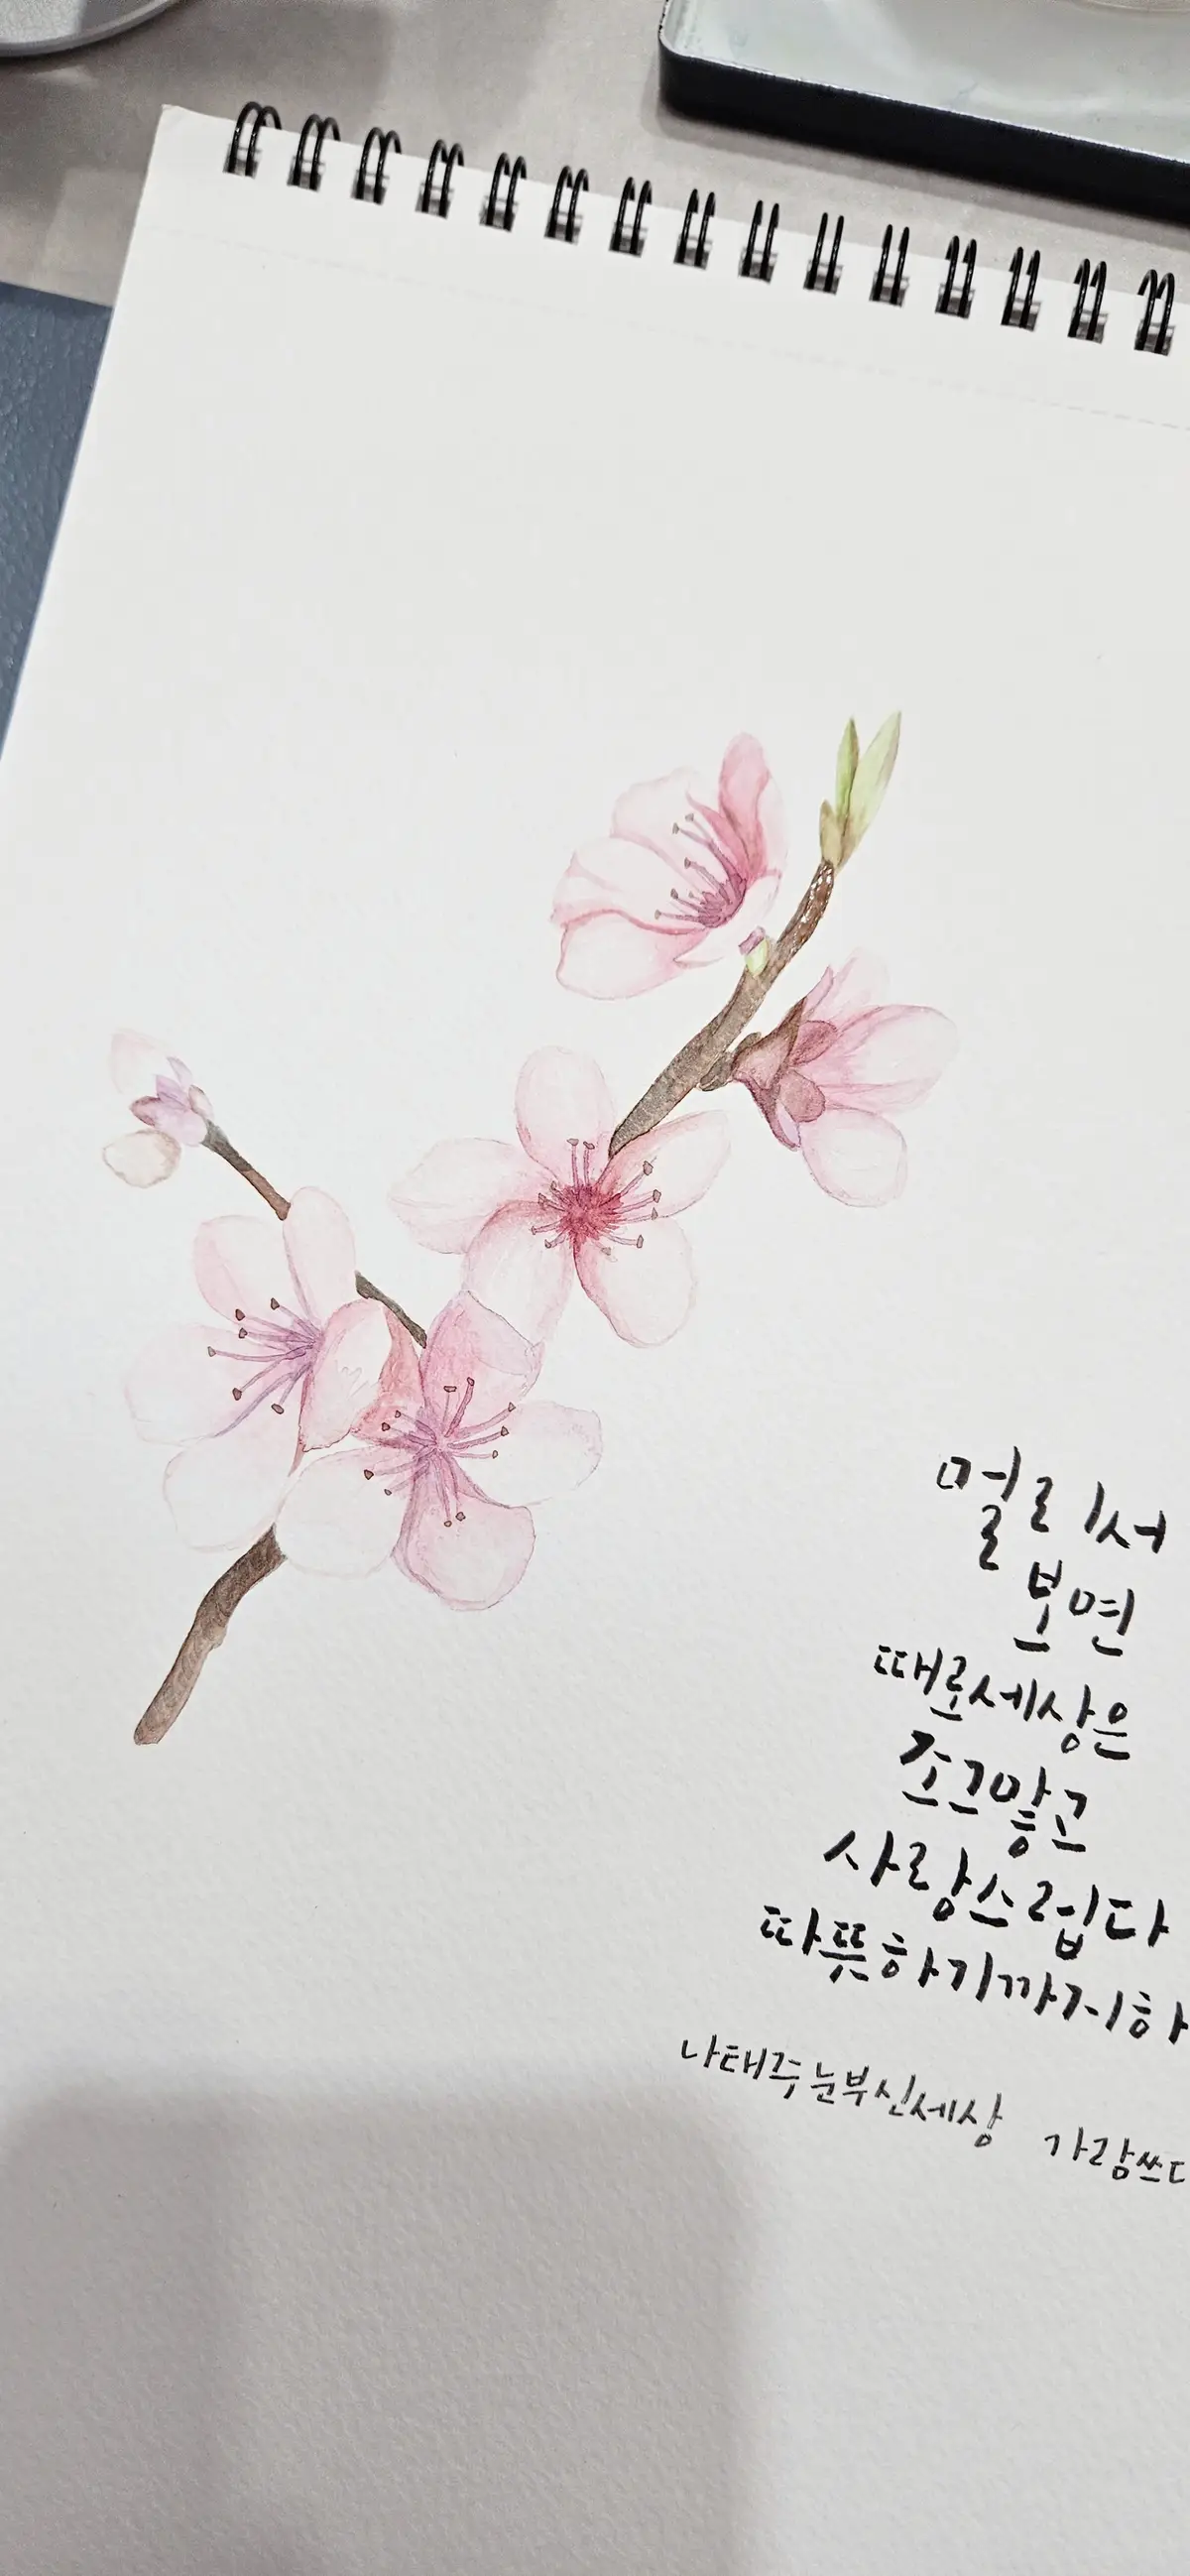 멀리서
보면
때로세상은
조그맣고
사랑스럽다
따뜻하기까지하
나태주눈부신세상 가람쓰다